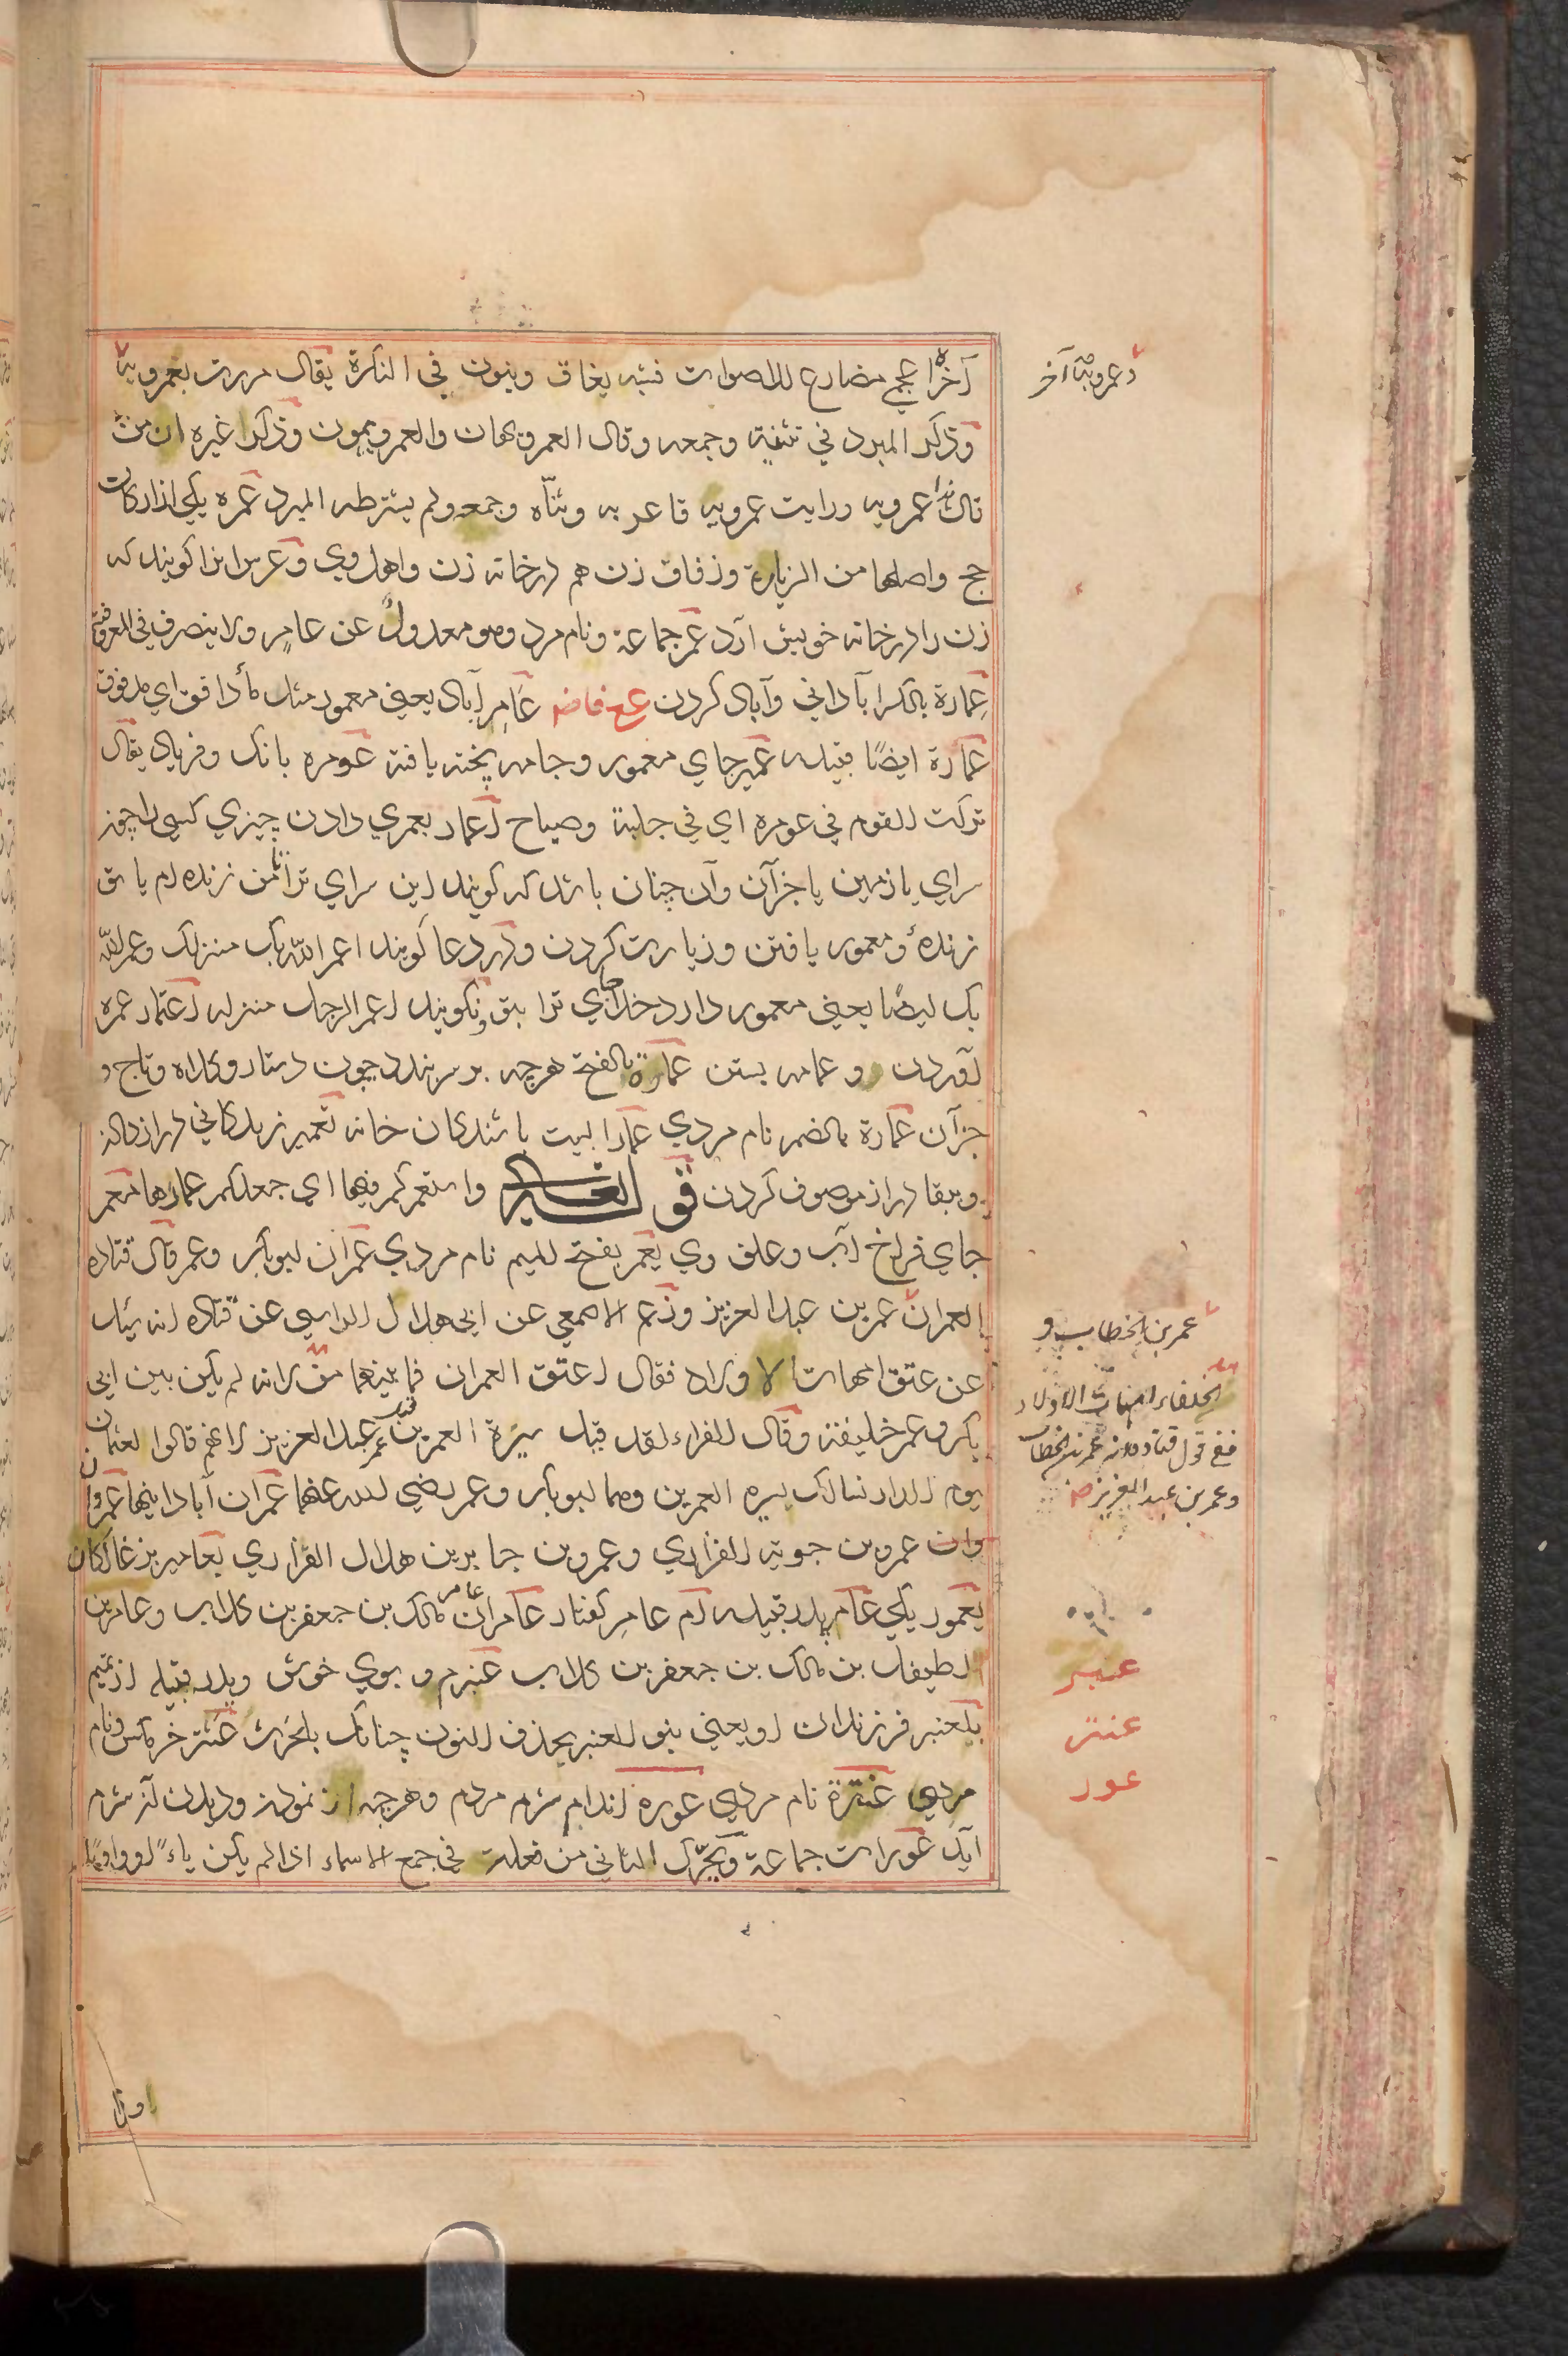 آخره اعجمي مضارع للاصوات فشبه بغاق وينون في النكرة يقال مررت بعمرويه
وعمرويه آخر
وذكر المبرد في تثنيته وجمعه وقال العمرويهان والعمرويهون وذكر غيره ان من
قال هذا عمرويه ورايت عمرويه فاعربه وثنّاه وجمعه ولم يشترطه المبرد عمره يكي از اركان
حج واصلها من الزيارة وزفاف زن هم در خانه زن واهل وي وعرس انرا كويند كه
زن را در خانه خويش آرد عمر جماعة ونام مرد وهو معدول عن عامر ولا ينصرف في المعرفة
عِمارة بالكسر آباداني وآباد كردن عامر آباد يعني معمور مثل ماء دافق اي مدفوق
عمارة ايضًا قبيله عمير جاي معمور وجامه پخته يافته عومره بانك وفرياد يقال
تركت القوم في عومرة اي في جلبة وصياح اعمار بعمري دادن چيزي كسي را چون
سراي يا زمين يا جز آن وآن چنان باشد كه كويند اين سراي ترا تا من زنده ام يا تو
زنده ومعمور يافتن وزيارت كردن ودر دعا كويند اعمر الله بك منزلك وعمر الله
بك ايضًا يعني معمور دارد خداي جاي ترا بتو ونكويند اعمر الرجل منزله اعتمار عمره
آوردن و عمامه بستن عمارة بالفتح هرچه بر سر نهند چون دستار وكلاه وتاج و
جز آن عمارة بالضم نام مردي عمار البيت باشندكان خانه تعمير زندكاني دراز دادن
وببقا دراز موصوف كردن واستعمركم فيها اي جعلكم عمارها معمر
جاي فراخ آب وعلف وي يعمر بفتح الميم نام مردي عمران ابو بكر وعمر وقال قتاده
العمران عمر بن عبد العزيز وزعم الاصمعي عن ابي هلال الراسبي عن قتاده انه سئل
عمر بن الخطاب و
عن عتق امهات الاولاد فقال اعتق العمران فما بينهما من لانه لم يكن بين ابي
الخلفاء امهات الاولاد
ففي قول قتاده انه عمر بن الخطاب
وعمر بن عبد العزيز
بكر وعمر خليفة وقال الفراء لقد قيل سيرة العمرين قبل عمر بن عبد العزيز قالوا لعثمان
يوم الدار نسالك سيره العمرين وهما ابو بكر وعمر رضي الله عنهما عمران آبادانيها
وان عمرو بن جوية الفزاري وعمرو بن جابر بن هلال الفزاري يعامير بزغالكان
يعمور يكي عامر پدر قبيله ام عامر كفتار عامران عامر بن مالك بن جعفر بن كلاب وعامر بن
الطفيل بن مالك بن جعفر بن كلاب عنبر م و بوي خوش وپدر قبيله از تميم
عنبر
بلعنبر فرزندان او يعني بنو العنبر بحذف النون چنانك بلحرث عنتر خرمكس ونام
عنتر
مردي عنترة نام مردي عورة اندام شرم مردم وهرچه از نمودن وديدن آن شرم
عور
آيد عورات جماعة ويحرك الثاني من فعلة في جمع الاسماء اذا لم يكن ياءً او واوًا